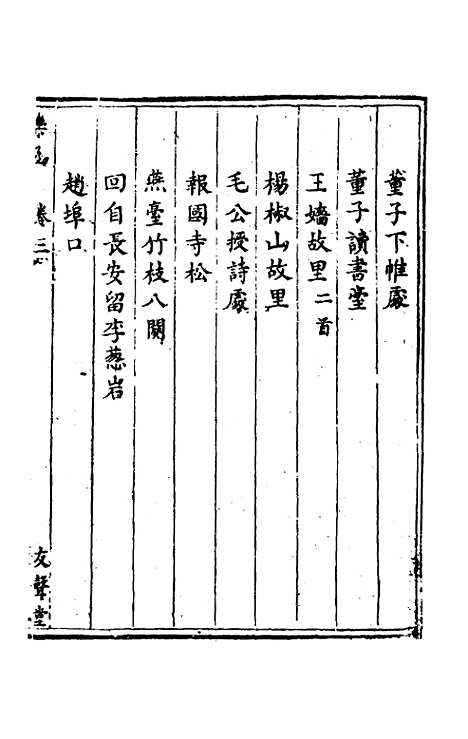 董子下帷處
董子讀書堂
王嬙故里二首
楊椒山故里
毛公授詩處
報國寺松
燕臺竹枝八闋
回自長安留李蒽岩
趙埠口
卷三
友聲堂